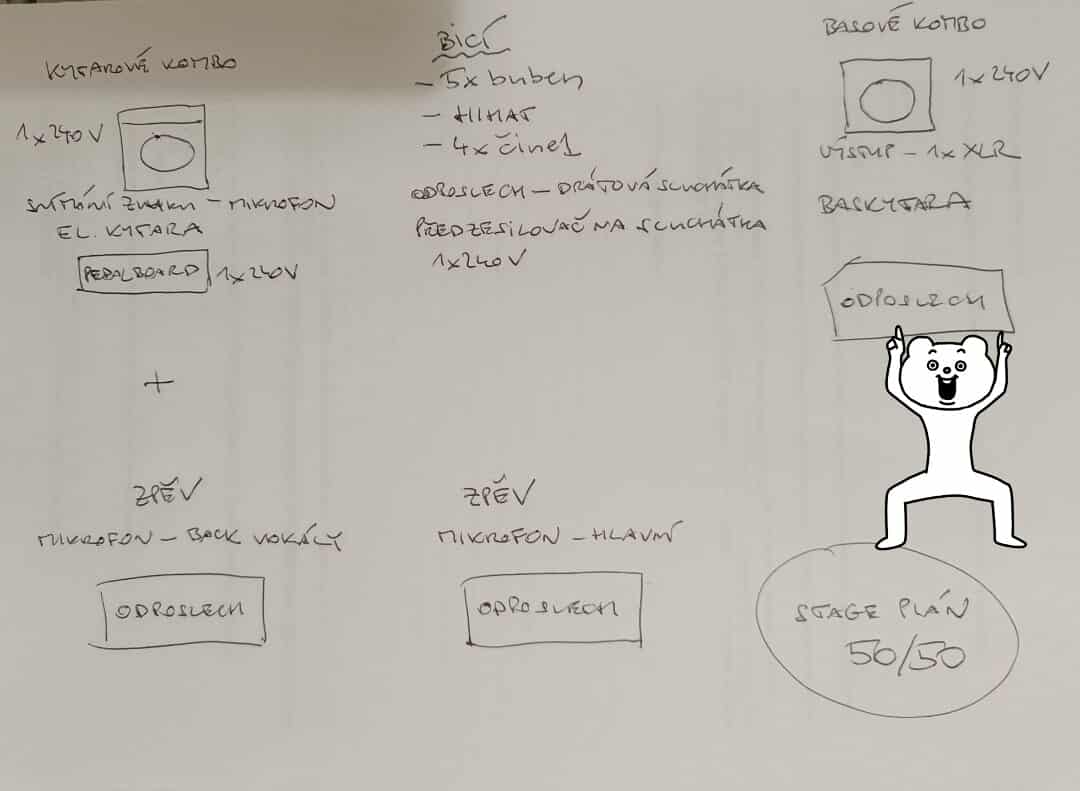 KYTAROVÉ KOMBO
1x240V
SNÍMÁNÍ ZVUKU - MIKROFON
EL. KYTARA
PEDALBOARD
1x240V
+
ZPĚV
MIKROFON - BACK VOKÁLY
ODPOSLECH
BICÍ
- 5x buben
- HIHAT
- 4x činel
ODPOSLECH - DRÁTOVÁ SLUCHÁTKA
PŘEDZESILOVAČ NA SLUCHÁTKA
1x240V
ZPĚV
MIKROFON - HLAVNÍ
ODPOSLECH
BASOVÉ KOMBO
1x240V
VÝSTUP - 1x XLR
BASKYTARA
ODPOSLECH
STAGE PLÁN
50/50